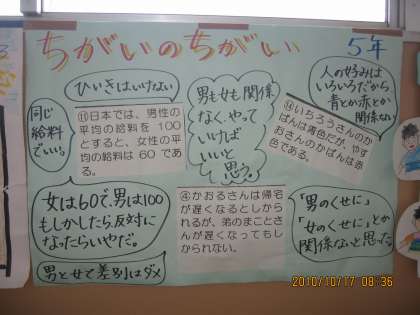 ちがいのちがい
5年
ひいきはいけない
同じ
給料
でいい。
⑪日本では、男性の
平均の給料を 100
とすると、女性の平
均の給料は 60 であ
る。
男も女も関係
なく、やって
いけば
いいと
思う。
人の好みは
いろいろだから
青とか赤とか
関係ない
⑭いちろうさんのか
ばんは青色だが、やす
おさんのかばんは赤
色である。
女は60で、男は100
もしかしたら、反対に
なったらいやだ。
男と女で差別はダメ
④かおるさんは帰宅
が遅くなるとしから
れるが、弟のまことさ
んが遅くなってもし
かられない。
「男のくせに」
「女のくせに」とか
関係ないと思った。
2010/10/17 08:36